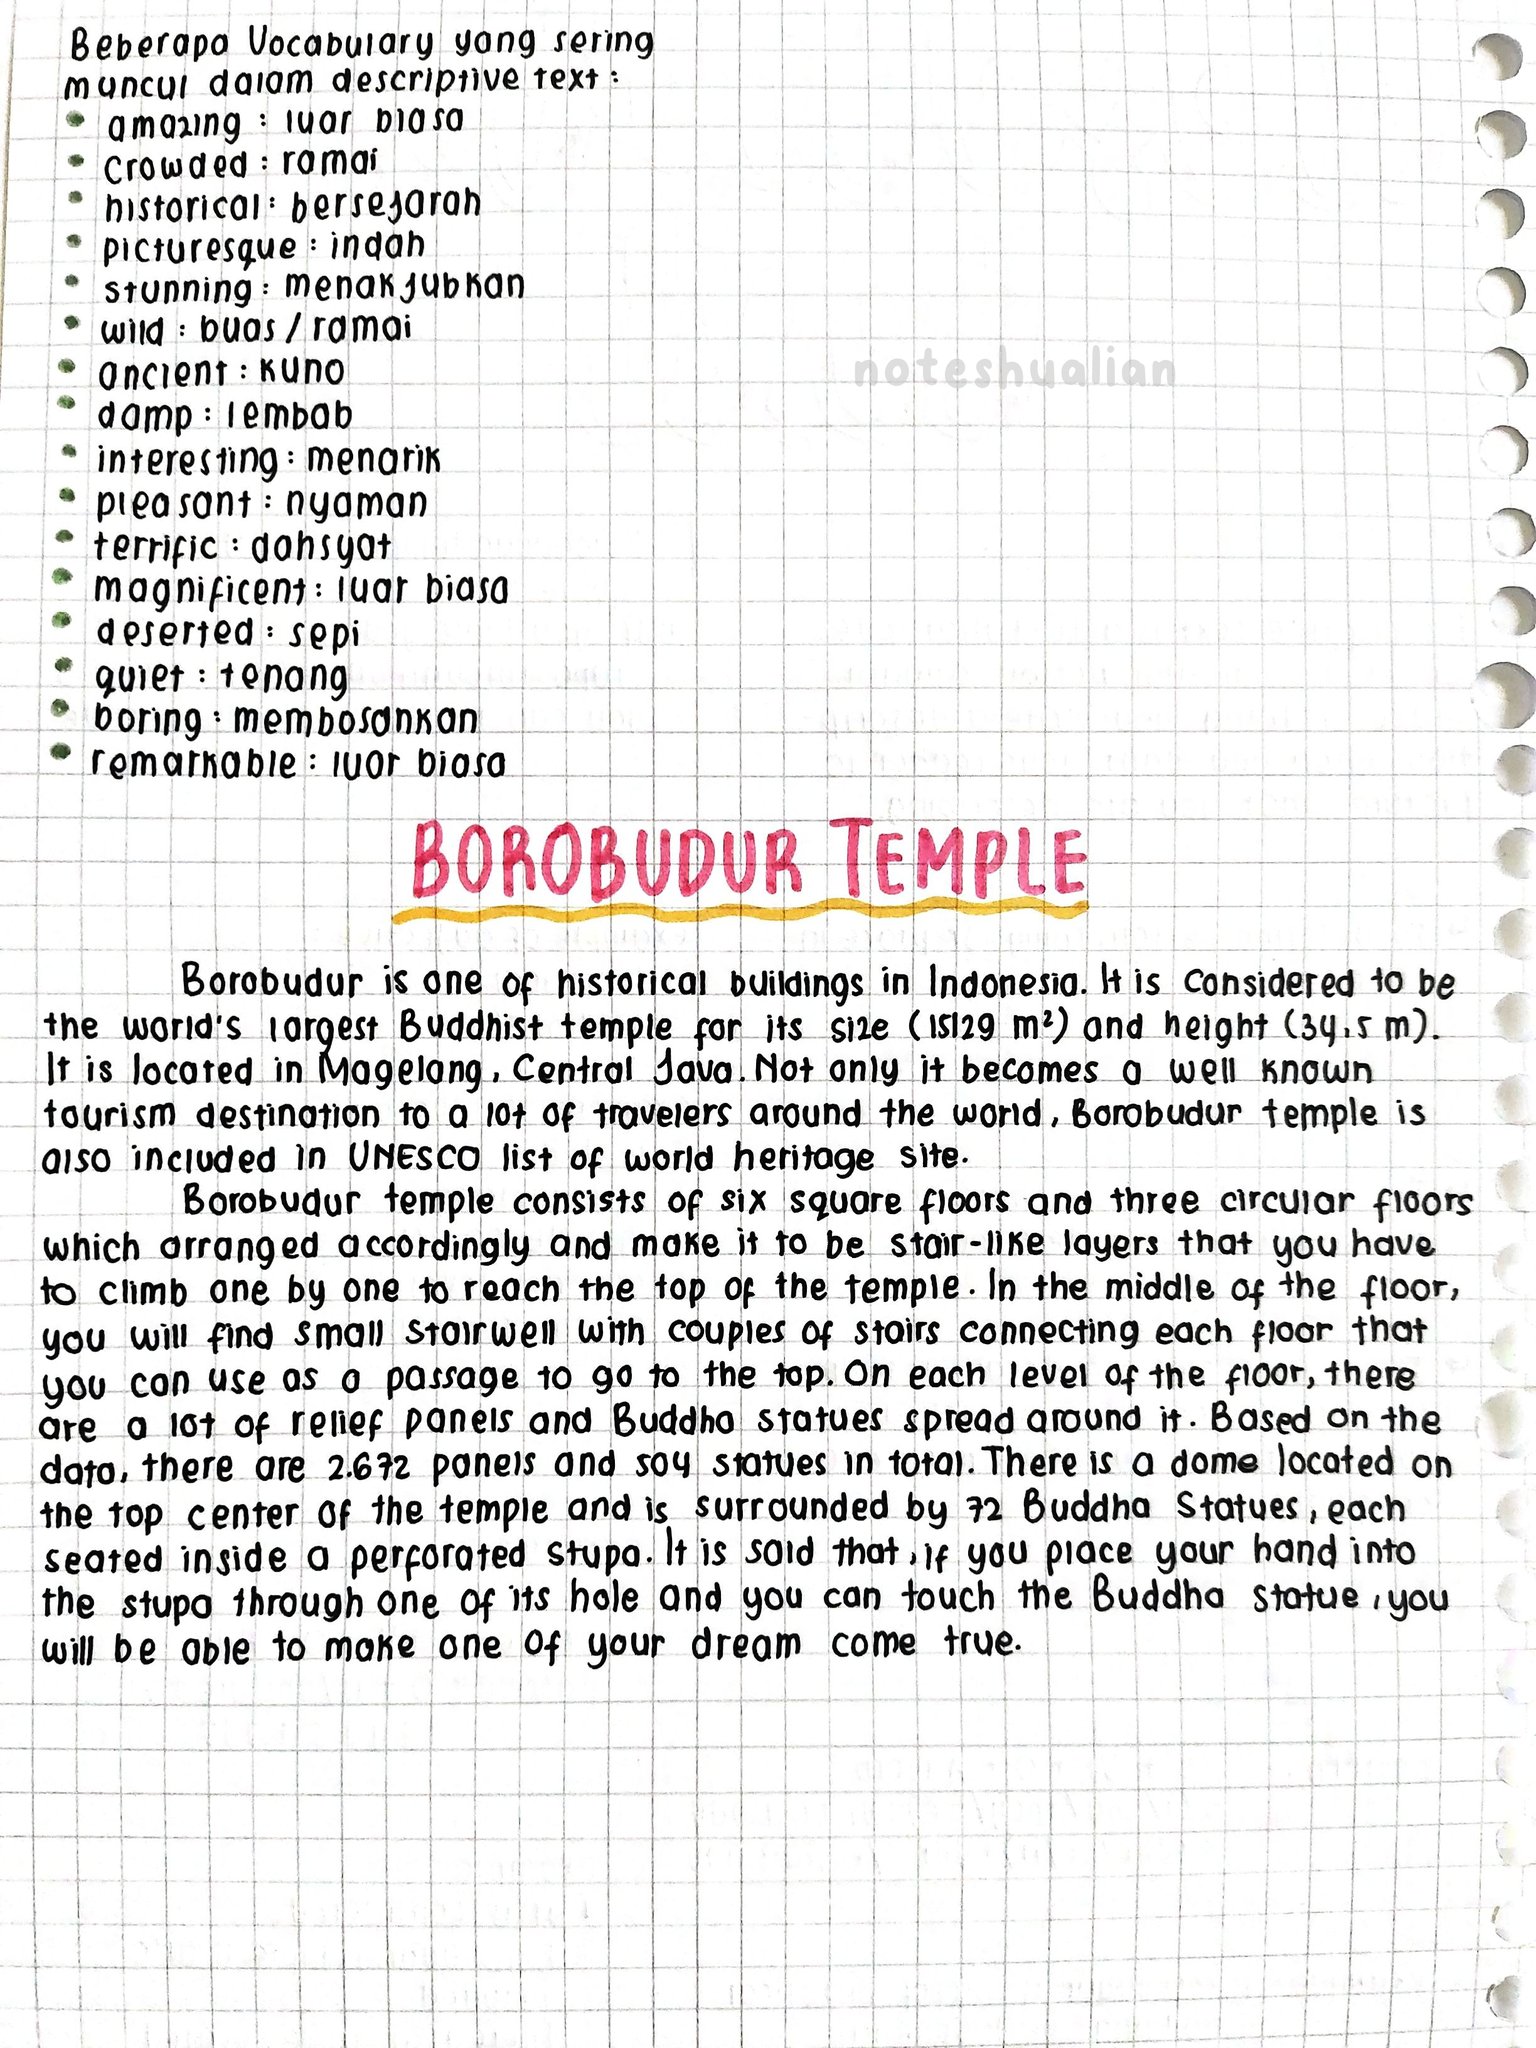 Beberapa Vocabulary yang sering
muncul dalam descriptive text :
• amazing : luar biasa
• crowded : ramai
• historical : bersejarah
• picturesque : indah
• stunning : menakjubkan
• wild : buas / ramai
• ancient : kuno
• damp : lembab
• interesting : menarik
• pleasant : nyaman
• terrific : dahsyat
• magnificent : luar biasa
• deserted : sepi
• quiet : tenang
• boring : membosankan
• remarkable : luar biasa
noteshualian
BOROBUDUR TEMPLE
Borobudur is one of historical buildings in Indonesia. It is considered to be
the world's largest Buddhist temple for its size (15129 m²) and height (34,5 m).
It is located in Magelang, Central Java. Not only it becomes a well known
tourism destination to a lot of travelers around the world, Borobudur temple is
also included in UNESCO list of world heritage site.
Borobudur temple consists of six square floors and three circular floors
which arranged accordingly and make it to be stair-like layers that you have
to climb one by one to reach the top of the temple. In the middle of the floor,
you will find small stairwell with couples of stairs connecting each floor that
you can use as a passage to go to the top. On each level of the floor, there
are a lot of relief panels and Buddha statues spread around it. Based on the
data, there are 2.672 panels and 504 statues in total. There is a dome located on
the top center of the temple and is surrounded by 72 Buddha Statues, each
seated inside a perforated stupa. It is said that, if you place your hand into
the stupa through one of its hole and you can touch the Buddha statue, you
will be able to make one of your dream come true.